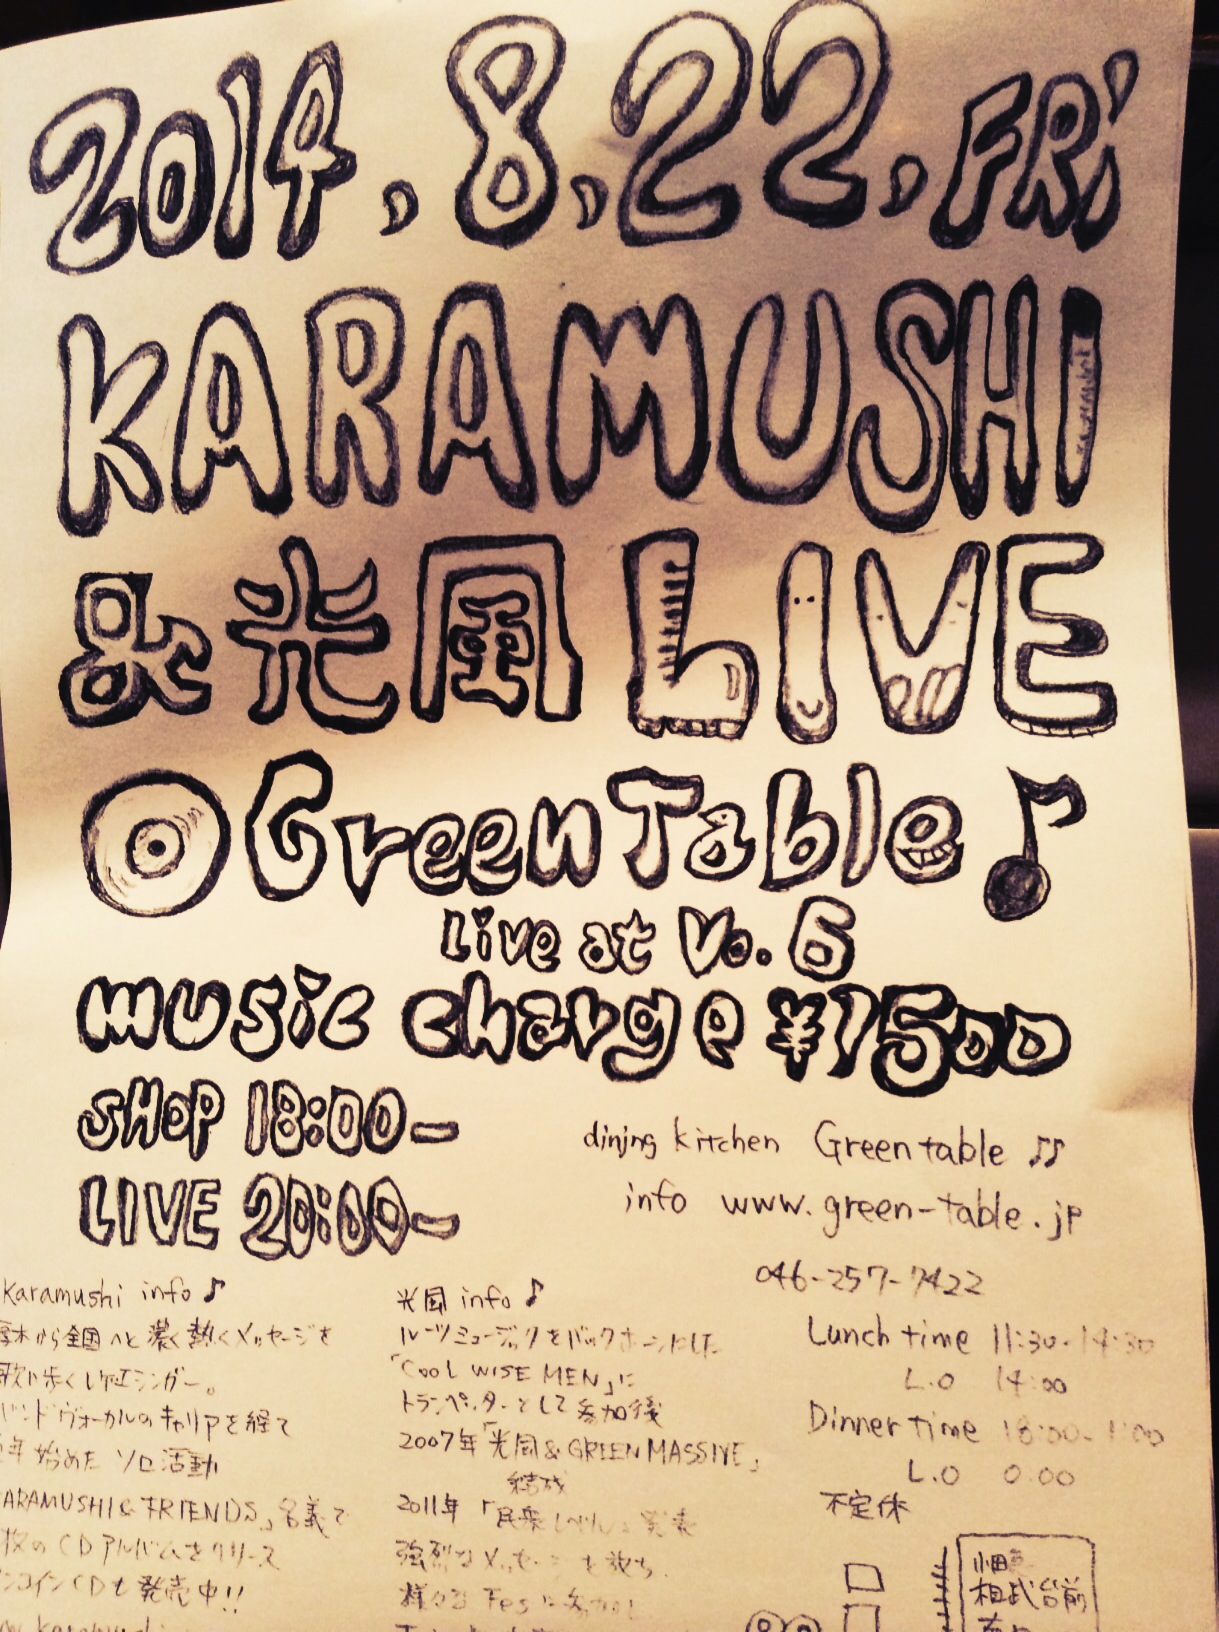 2014.8.22.FRI
KARAMUSHI
&光風 LIVE
Green Table♪
Live at Vo.6
music charge ¥1500
SHOP 18:00-
LIVE 20:00-
dining kitchen Green table ♫
info www.green-table.jp
046-257-7422
Lunch time 11:30-14:30
L.O 14:00
Dinner time 18:00-1:00
L.O 0:00
不定休
karamushi info♪
木から全国へと濃く熱くメッセージを
歌い歩くレゲエシンガー。
バンドヴォーカルのキャリアを経て
年始めた ソロ活動
ARAMUSHI & FRIENDS」名義で
枚のCDアルバムをリリース
ンコインCDも発売中!!
karamushi
光風 info♪
ルーツミュージックをバックボーンとした
「COOL WISE MEN」に
トランペッターとして参加後
2007年「光風&GREEN MASSIVE」
結成
2011年「民衆レベル」発表
強烈なメッセージを放ち、
様々なFesに参加し
相武台前